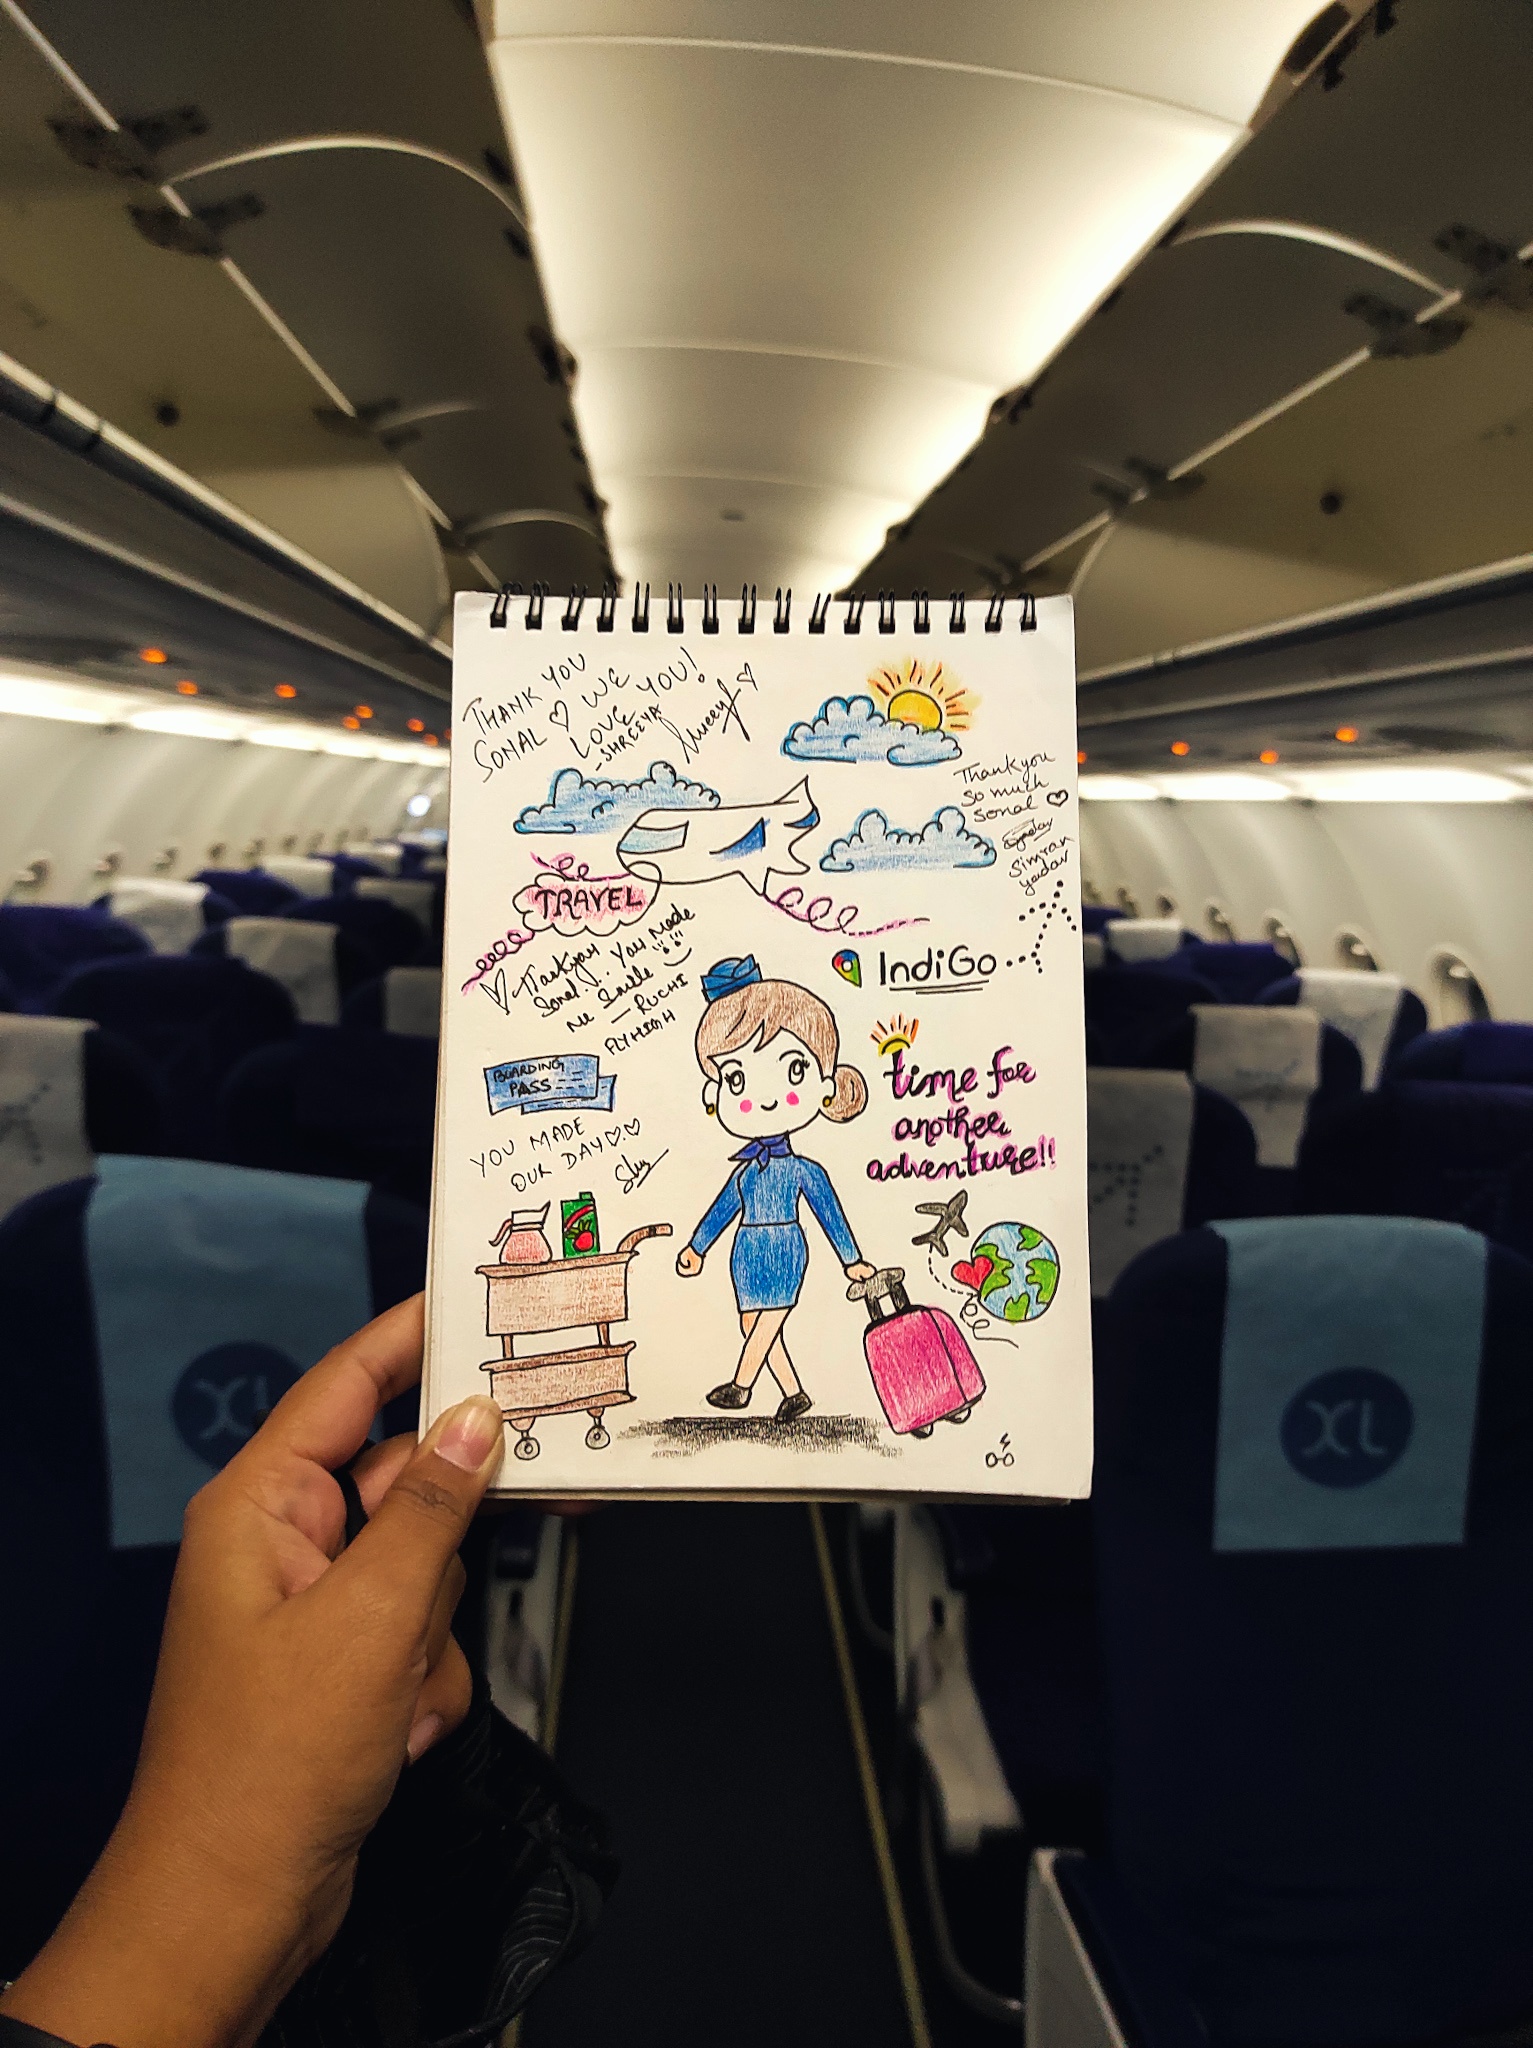 THANK YOU
SONAL ♡ WE
LOVE YOU!
-SHREEYA
Thank you
so much
sonal ♡
Simran
yadav
TRAVEL
♡ Thankyou
Sonal! You made
me Smile
— RUCHI
FLYHIGH
IndiGo
BOARDING
PASS
time for
another
adventure!!
YOU MADE
OUR DAY ♡.♡
XL
XL